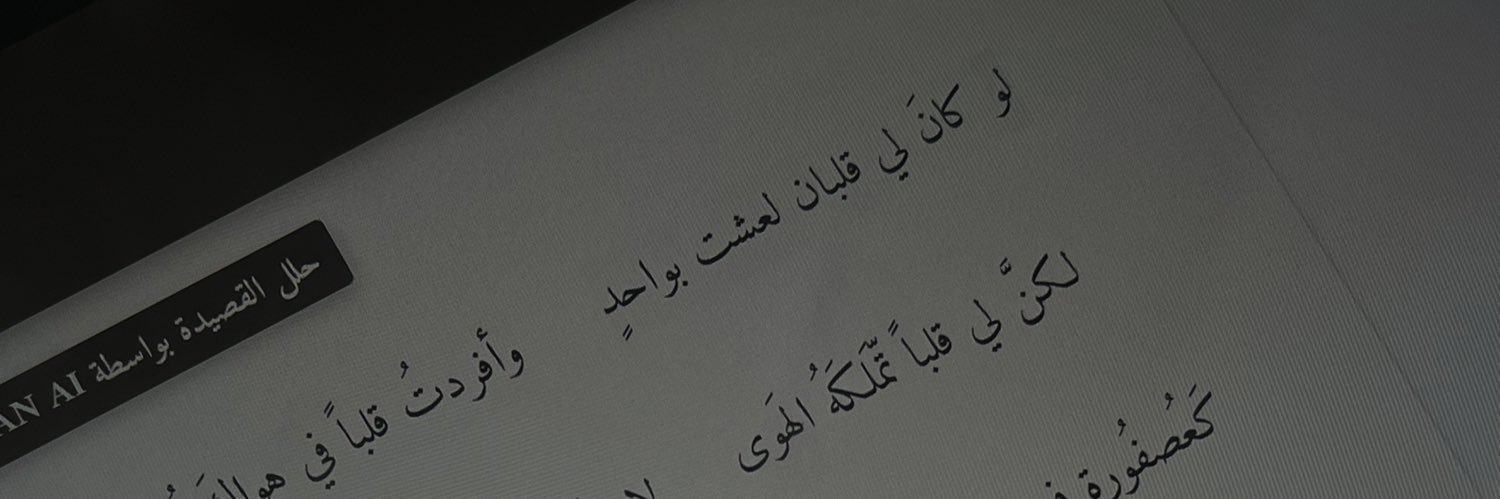 لو كانَ لي قلبان لعشت بواحدٍ
وأفردتُ قلباً في هواكَ
لكنَّ لي قلباً تمَّلكَهُ الهَوى
كَعُصفُورة
حلل القصيدة بواسطة AN AI